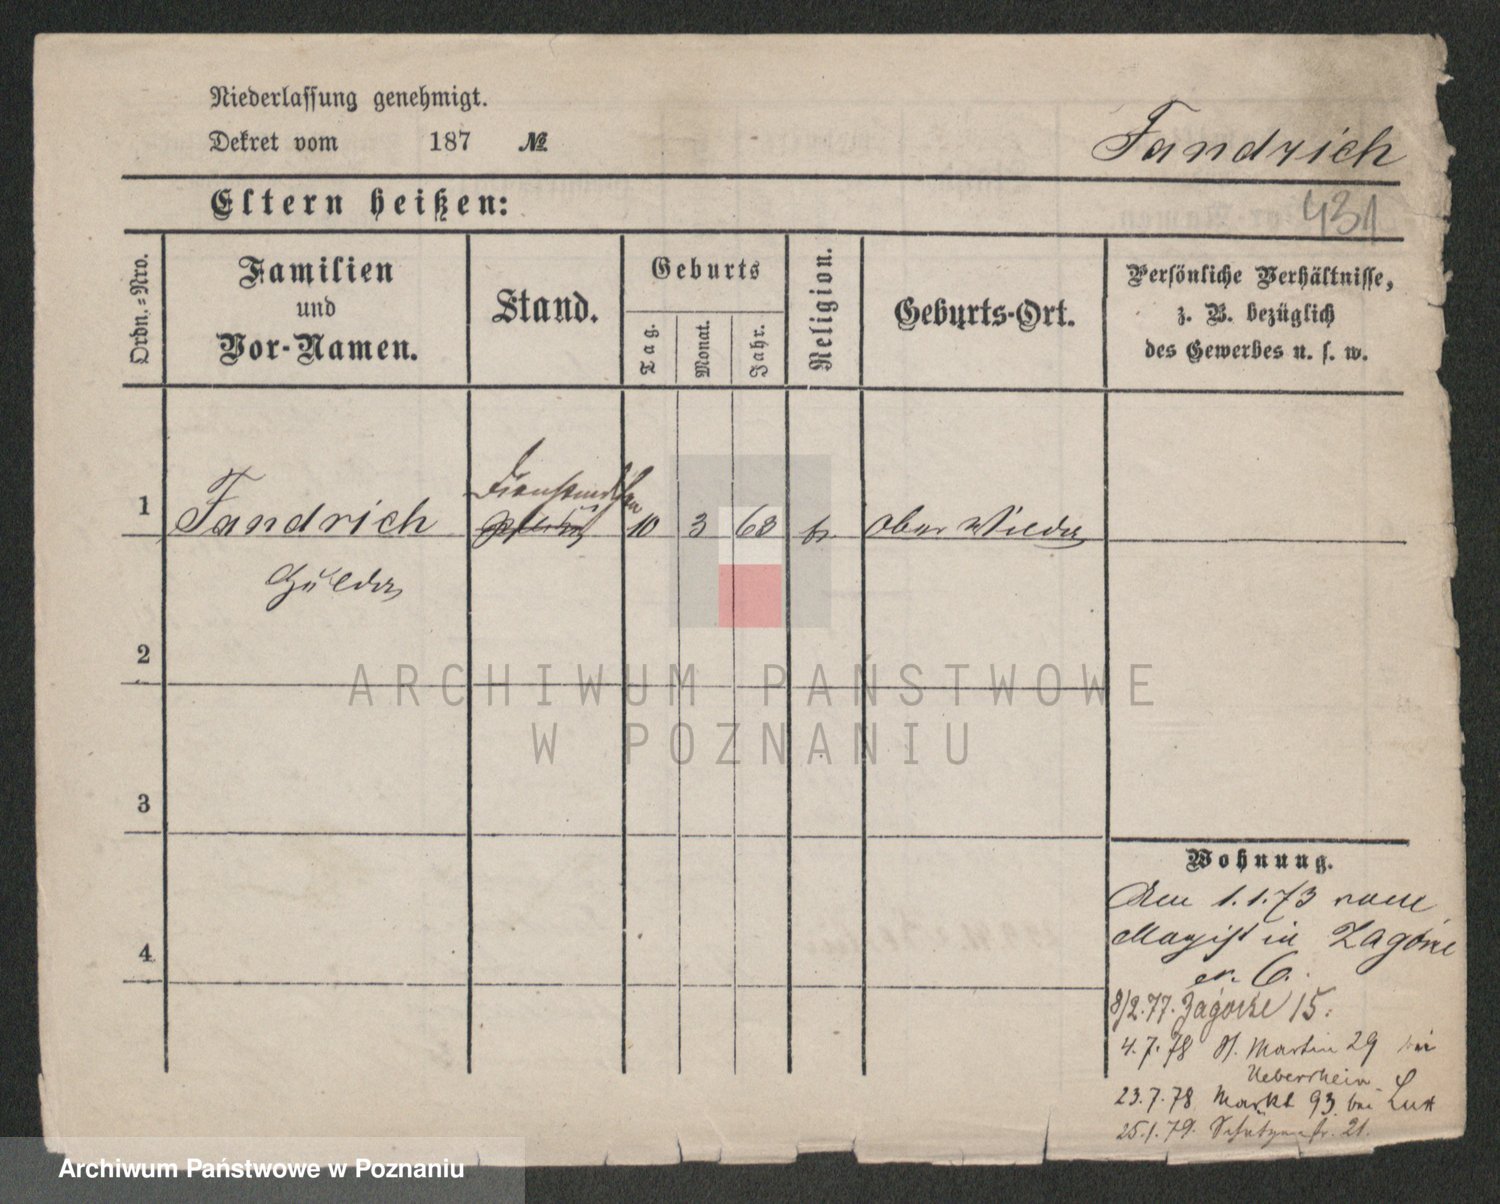 Niederlassung genehmigt.
Dekret vom 187 №
Fandrich
431
Eltern heißen:
Ordn.=Nro.
Familien
und
Vor-Namen.
Stand.
Geburts
Tag.
Monat.
Jahr.
Religion.
Geburts-Ort.
Persönliche Verhältnisse,
z. B. bezüglich
des Gewerbes u. s. w.
1
Fandrich
10 3 68
Ober Wilda
2
3
4
Wohnung.
1.1.73
Magist in Zagórze
6.
8/2.77. Zagorze 15.
4.7.78 St. Martin 29 bei
Ueberrhein
23.7.78 Markt 93 bei
25.1.79. Schützenstr. 21.
ARCHIWUM PAŃSTWOWE
W POZNANIU
Archiwum Państwowe w Poznaniu